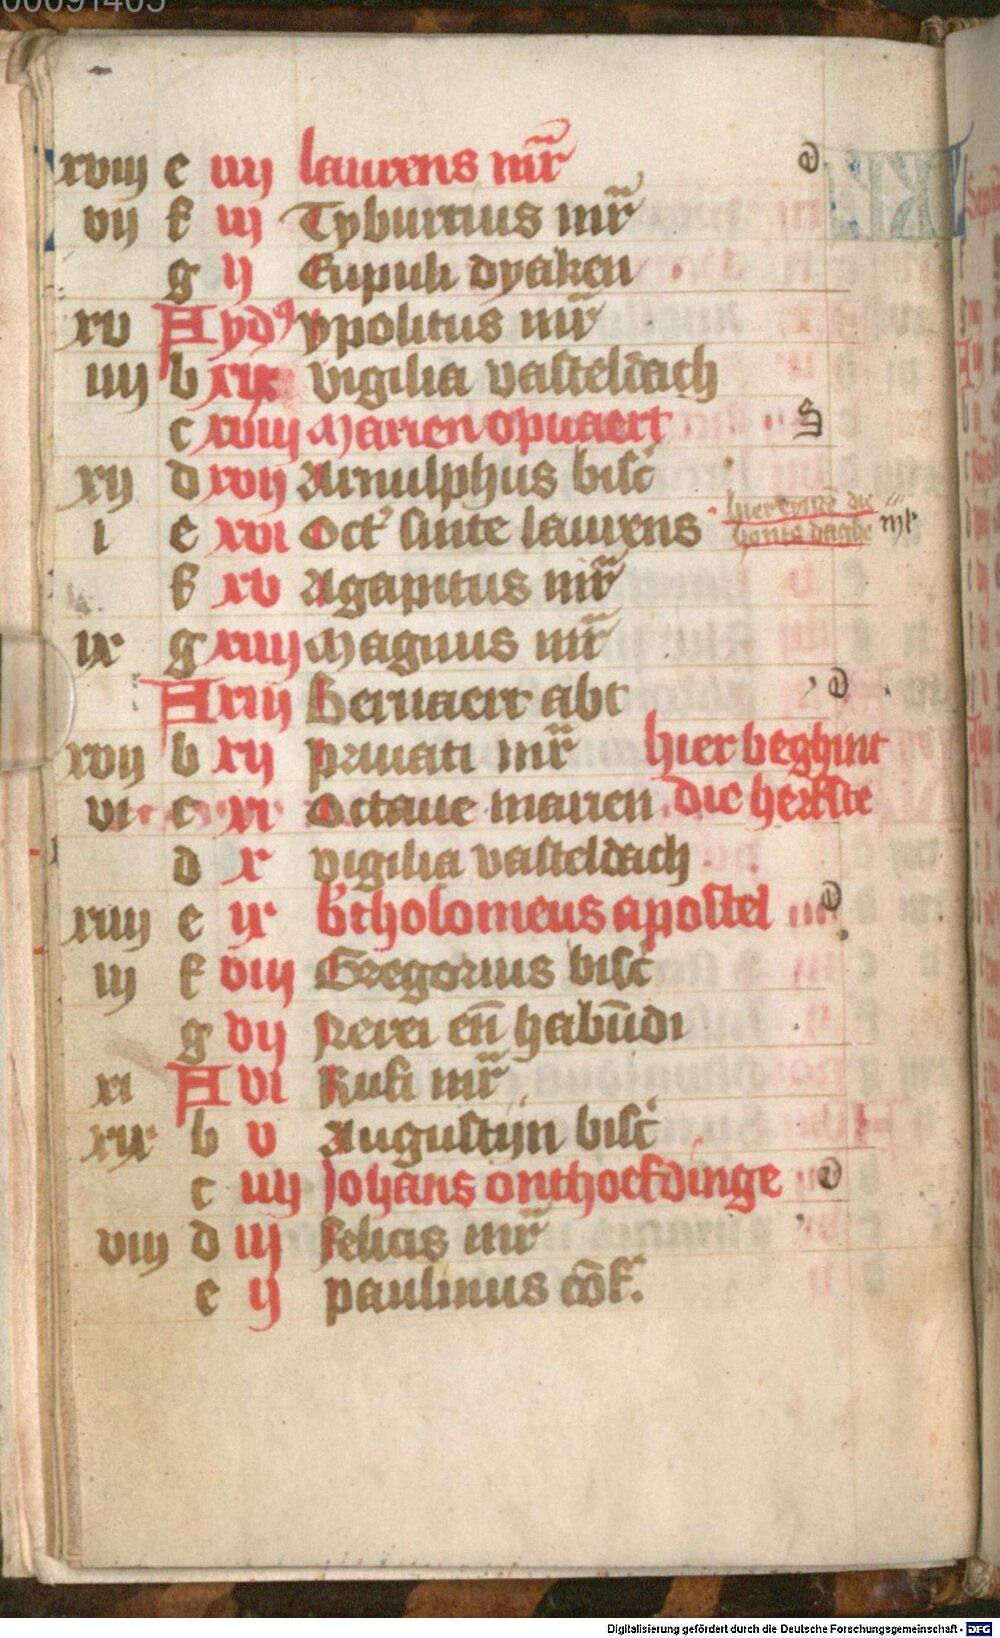 00091405
xviij e iiij laurens mr̃ d
vij f iij Tyburtius mr̃
g ij Eupuli dyaken
xv A yd9 ypolitus mr̃
iiij b xix vigilia vasteldach
c xviij Marien opuaert S
xij d xvij Arnulphus bisc̃
i e xvi Oct' sinte laurens hier die
f xv Agapitus mr̃ honts daghe
ix g xiiij Magnus mr̃
A xiij Bernaert abt d
xvij b xij priuati mr̃ hier beghint
vi c xi Octaue marien die herfste
d x vigilia vasteldach
xiiij e ix b̃tholomeus apostel d
iij f viij Gregorius bisc̃
g vij herei en̄ habūdi
xi A vi Rufi mr̃
xix b v Augustijn bisc̃
c iiij Johans onthoefdinge d
viij d iij felicis mr̃
e ij paulinus cōf.
Digitalisierung gefördert durch die Deutsche Forschungsgemeinschaft - DFG